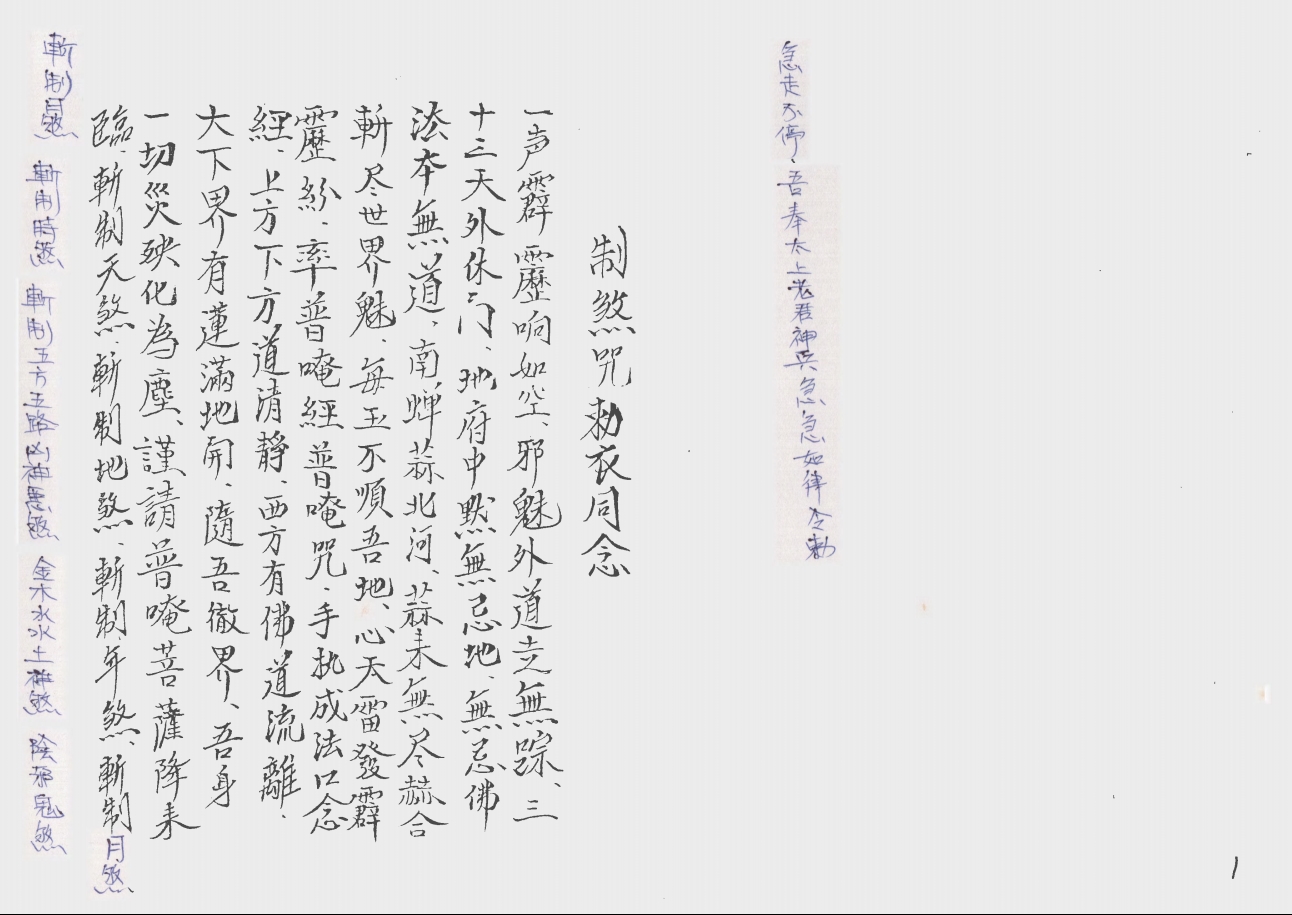 制煞咒勅衣同念
一声霹靂响如空、邪魅外道走無踪、三
十三天外休门、地府中默無忌地、無忌佛
法本無道、南蝉蒜北河、蒜来無尽赫合
斬尽世界魅、每玉不順吾地、心天雷發霹
靂紛、率普唵經普唵咒、手执成法口念
經、上方下方道清靜、西方有佛道流離、
大下界有蓮滿地開、隨吾徹界、吾身
一切災殃化為塵、謹請普唵菩薩降来
臨、斬制天煞、斬制地煞、斬制年煞、斬制月煞
斬制日煞 斬制時煞 斬制五方五路凶神惡煞 金木水火土神煞 陰邪鬼煞
急走不停、吾奉太上老君神兵急急如律令勅
1